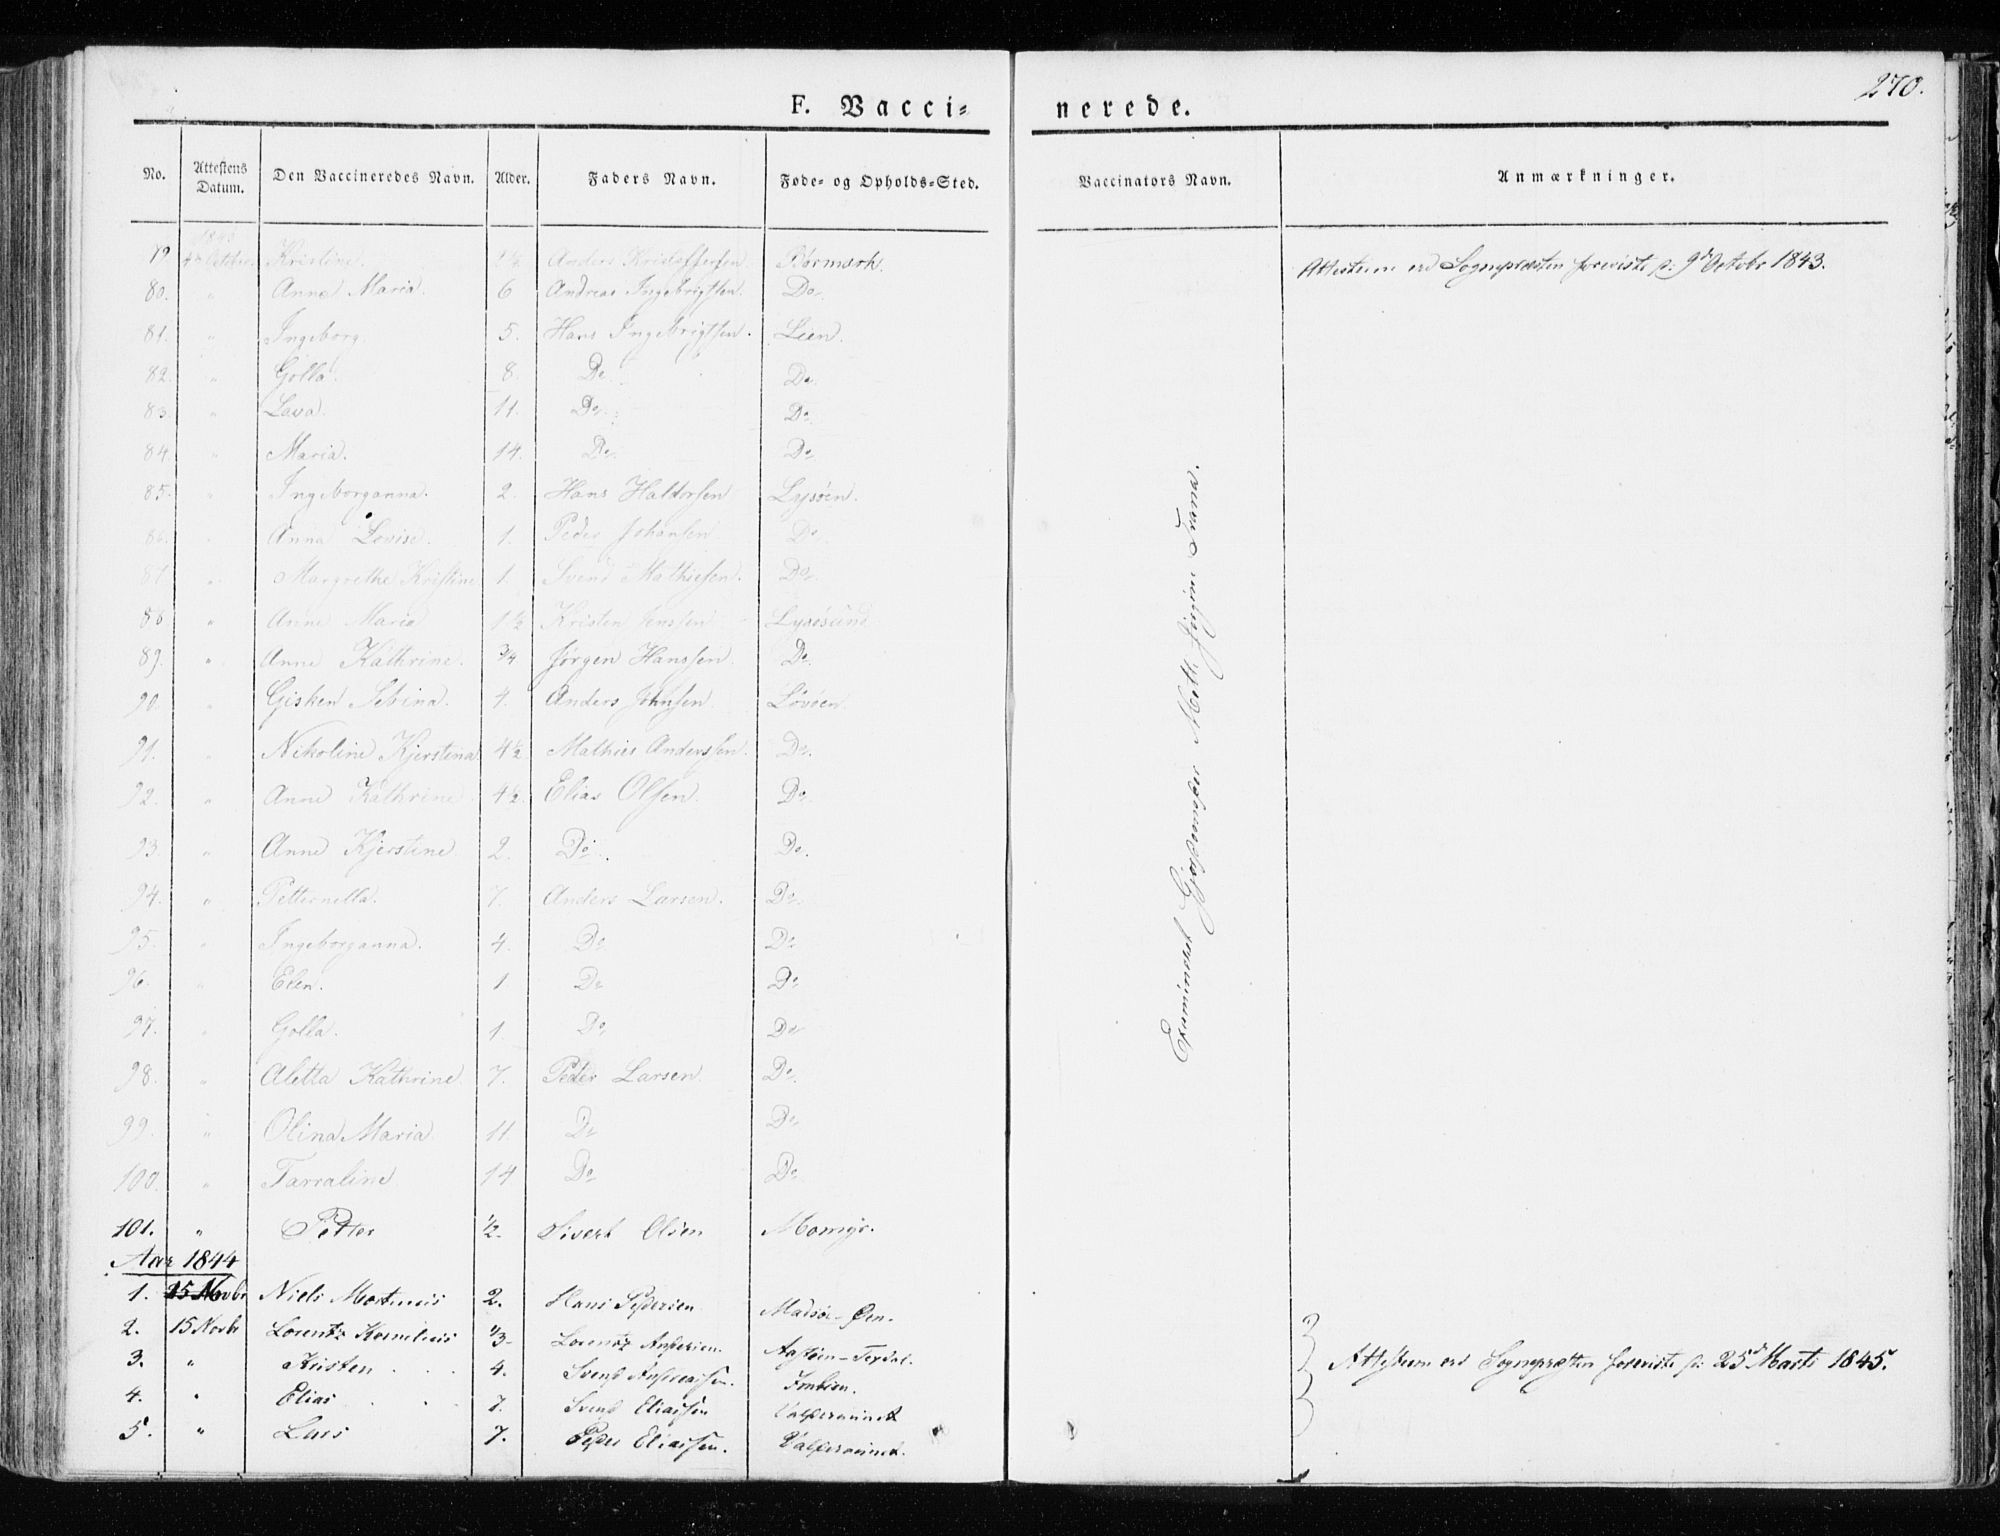 270.
F. Vaccinerede.
No. Attestens Datum. Den Vaccineredes Navn. Alder. Faders Navn. Føde- og Opholds-Sted. Vaccinators Navn. Anmærkninger.
1843
79 4de October Kristine. 2½ Anders Kristoffersen Børmark. Attesten end Sognepræsten foreviste p: 9de Octobr 1843.
80. Anne Maria. 6 Andreas Ingebrigtsen. Do
81. " Ingeborg. 5. Hans Ingebrigtsen. Lien.
82. " Golla. 8. Do Do
83. " Lava. 11. Do Do
84. " Maria. 14. Do Do
85. " Ingeborganna. 2. Hans Haldorsen Lysøen.
86. " Anna Lovise. 1. Peder Johansen Do
87. " Margrethe Kristine 1. Svend Mathiesen. Do
88 " Anne Maria 1½ Kristen Jenssen Lysøsund
89. " Anne Kathrine. ¾ Jørgen Hanssen. Do
90. " Gisken Sebina. 4. Anders Johnsen Løvøen
91. " Nikoline Kjerstina 4½ Mathies Anderssen. Do.
92. " Anne Kathrine 4½. Elias Olsen. Do
93. " Anne Kjerstine 2. Do Do.
94. " Petternella. 7. Anders Larsen. Do
95. " Ingeborganna. 4. Do Do
96. " Elen. 1 Do Do
97. " Golla. 1 Do Do
98. " Aletta Kathrine. 7. Peder Larsen. Do
99. " Olina Maria 11. Do Do
100. " Tarraline 14 Do Do
101. " Petter ½. Sivert Olsen Momyr.
Examineret Gjordemoder Meth. Jørgine Trana.
Aar 1844
1. 25 Novbr Niels Martinus 2. Hans Pedersen Madsø-Øen.
2. 15 Novbr Lorentz Kornelius ⅓ Lorentz Andersen.
3. " Kristen 4. Svend Andreassen. Attesten end Sognepræsten foreviste p: 25de Marts 1845.
4. " Elias 7. Svend Eliassen
5. " Lars 7. Peder Eliassen.